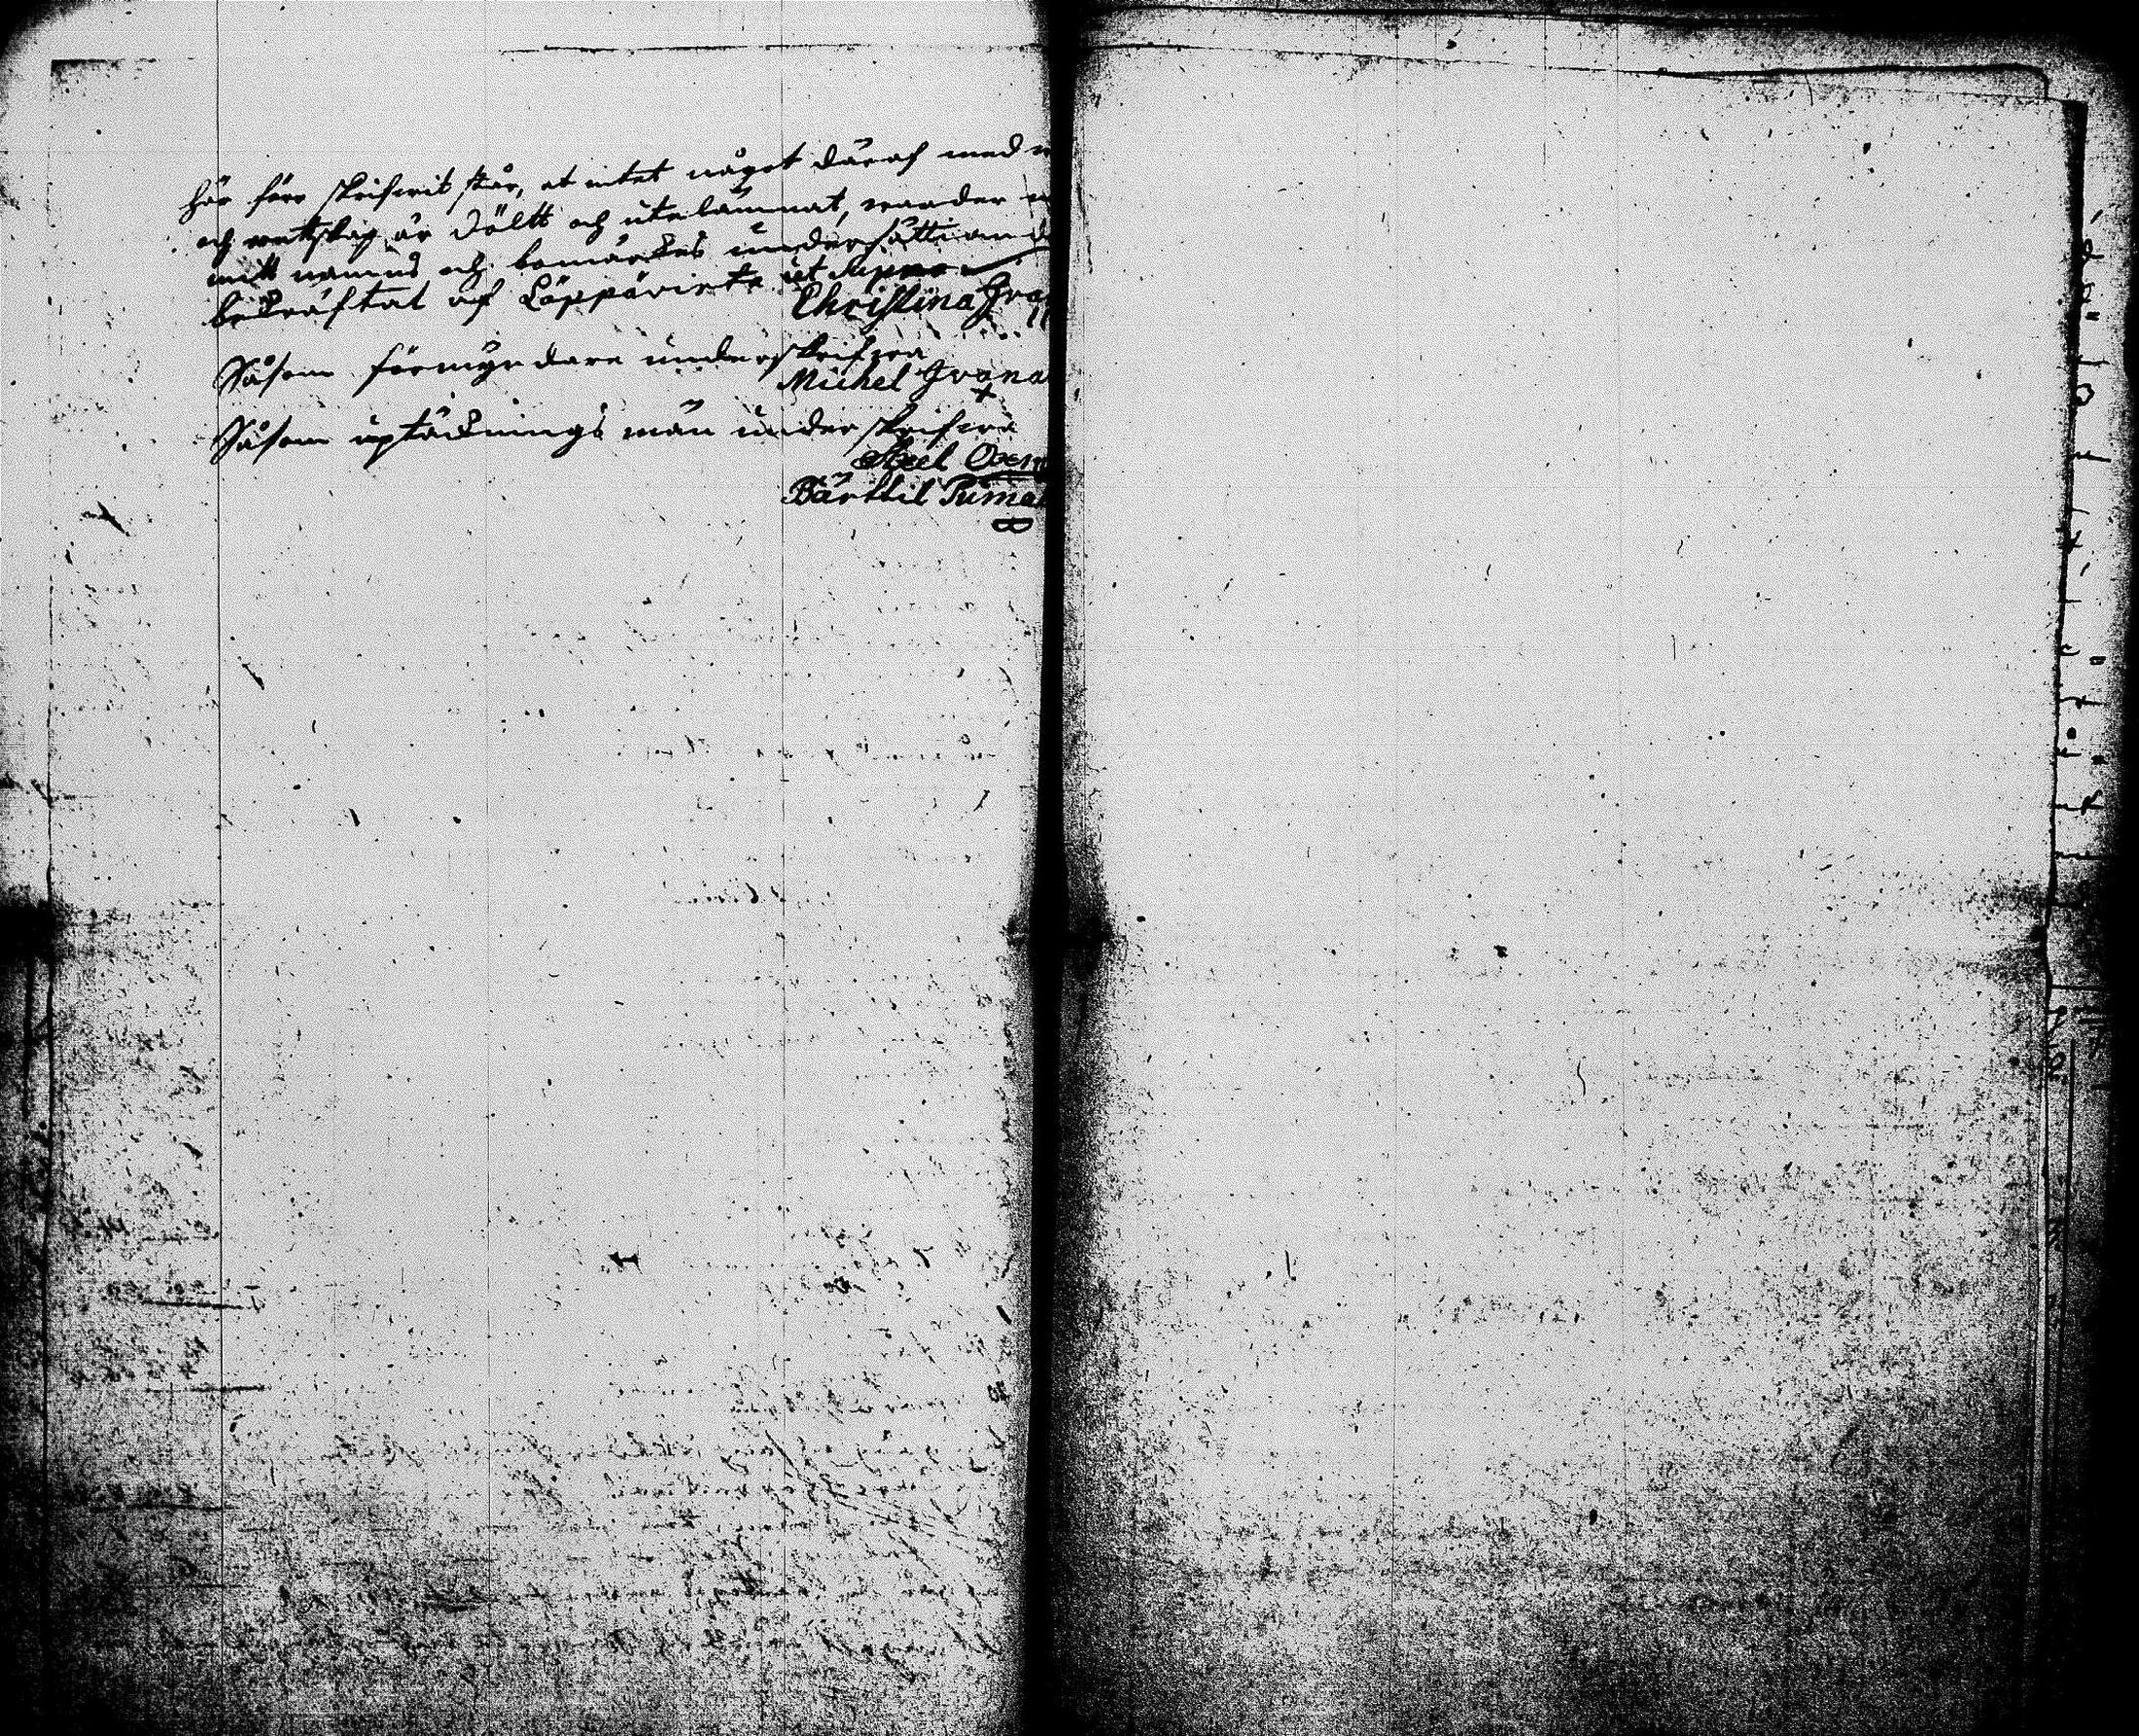 här före skrifwit står, at intet något däraf med
och wetskap är dölt och utelämnat, warder
mitt namns och bomärkes undersättiande
bekräftat af Läppävirta ut supra
Christina Gran
Såsom förmyndare underskrifwa
Michel Grana
Såsom uptäcknings män underskrifwa
Axel Oxen
Bärttil Puma